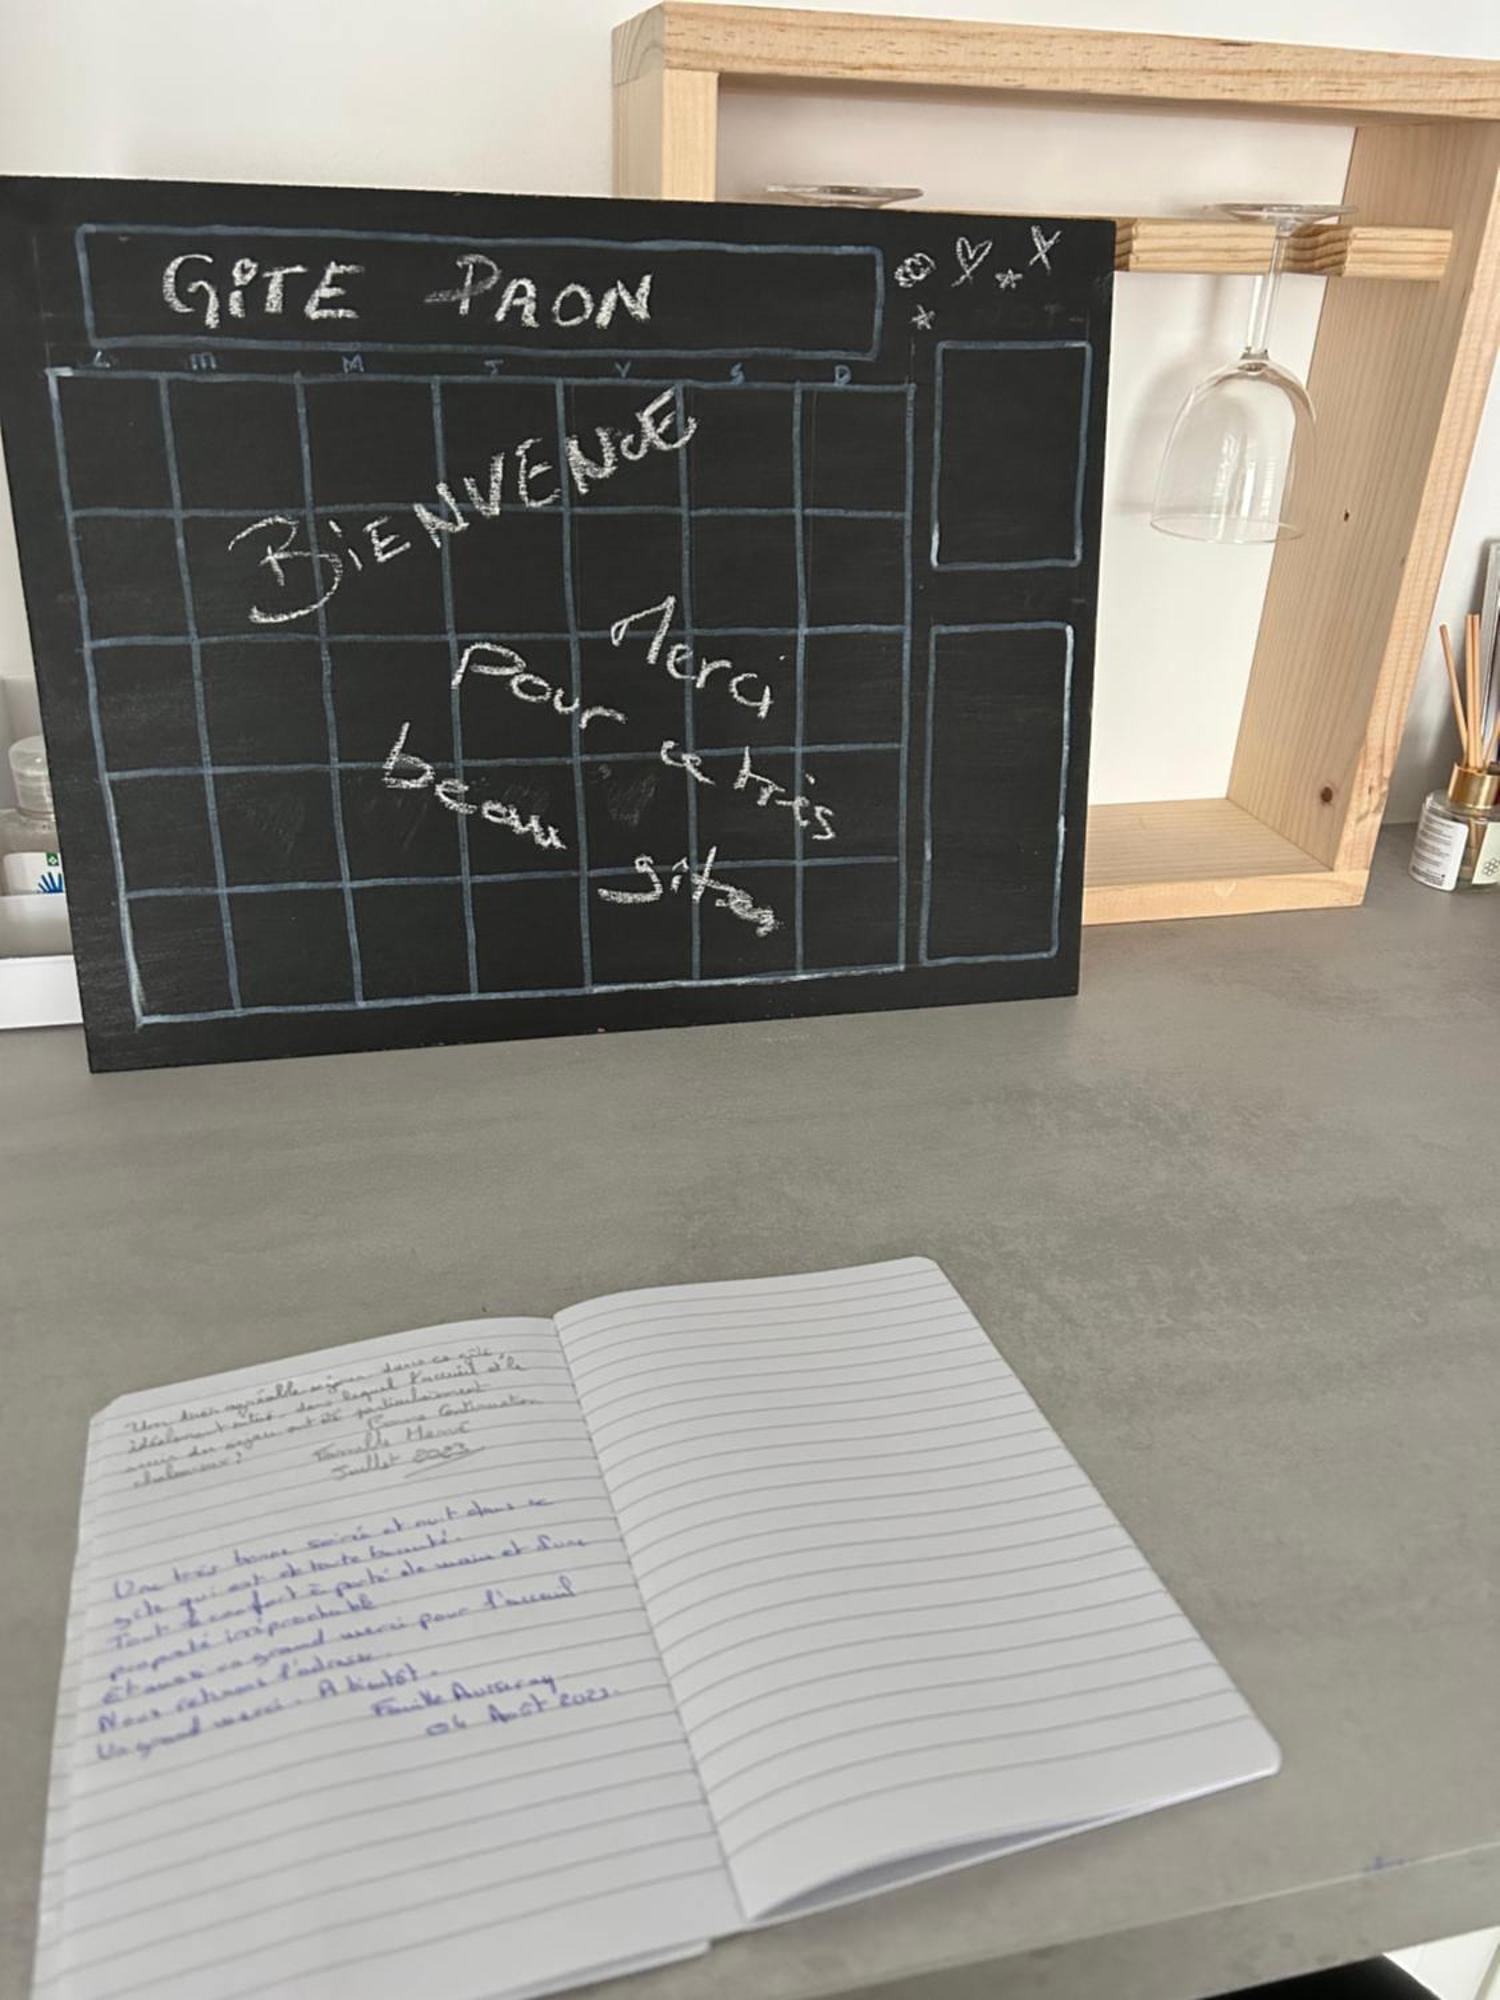 GiTE PAON
L m M J V S D
BiENVENUE
Merci
Pour
ce très
beau
gîte
Un bien agréable séjour dans ce gîte,
idéalement situé, dans lequel l'accueil et le
ont été particulièrement
chaleureux!
Bonne Continuation
Famille Hervé
Juillet 2023
Une très bonne soirée et nuit dans ce
gîte qui est de toute beauté.
Tout confort à porté de main et d'une
propreté irréprochable
Et aussi un grand merci pour l'accueil
Nous retenons l'adresse.
Un grand merci. A bientôt.
Famille
06 Août 2023.